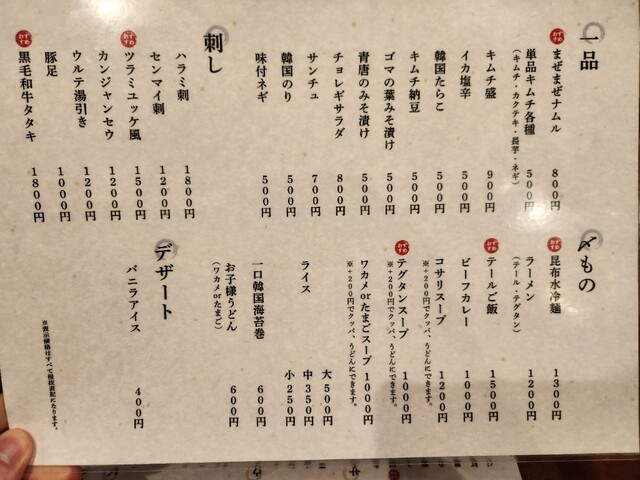 一品
おすすめ
まぜまぜナムル 800円
単品キムチ各種 500円
（キムチ・カクテキ・長芋・ネギ）
キムチ盛 900円
イカ塩辛 500円
韓国たらこ 500円
キムチ納豆 500円
ゴマの葉みそ漬け 500円
青唐のみそ漬け 500円
チョレギサラダ 800円
サンチュ 700円
韓国のり 500円
味付ネギ 500円
刺し
ハラミ刺 1800円
センマイ刺 1200円
おすすめ
ツラミユッケ風 1500円
カンジャンセウ 1200円
ウルテ湯引き 1200円
豚足 1000円
おすすめ
黒毛和牛タタキ 1800円
〆もの
おすすめ
昆布水冷麺 1300円
ラーメン 1200円
（テール・テグタン）
おすすめ
テールご飯 1500円
ビーフカレー 1000円
コサリスープ 1200円
※+200円でクッパ、うどんにできます。
おすすめ
テグタンスープ 1000円
※+200円でクッパ、うどんにできます。
ワカメorたまごスープ 1000円
※+200円でクッパ、うどんにできます。
ライス
大 500円
中 350円
小 250円
一口韓国海苔巻 600円
お子様うどん 600円
（ワカメorたまご）
デザート
バニラアイス 400円
※表示価格はすべて税抜表記になります。